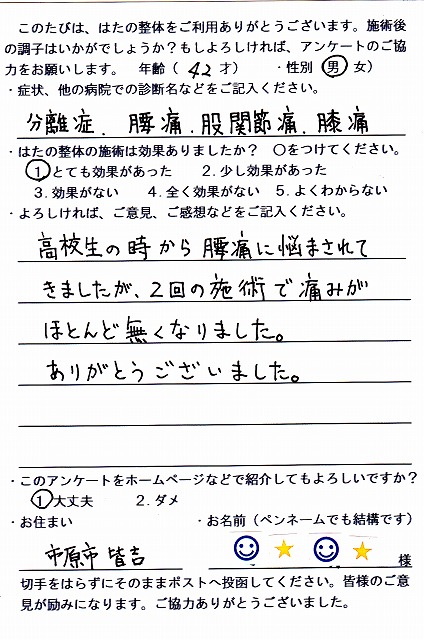 このたびは、はたの整体をご利用ありがとうございます。施術後
の調子はいかがでしょうか？もしよろしければ、アンケートのご協
力をお願いします。　年齢（ 42 才）　・性別 男 女）
・症状、他の病院での診断名などをご記入ください。
分離症．腰痛．股関節痛．膝痛
・はたの整体の施術は効果ありましたか？　〇をつけてください。
1 とても効果があった　2．少し効果があった
3．効果がない　4．全く効果がない　5．よくわからない
・よろしければ、ご意見、ご感想などをご記入ください。
高校生の時から腰痛に悩まされて
きましたが、2回の施術で痛みが
ほとんど無くなりました。
ありがとうございました。
・このアンケートをホームページなどで紹介してもよろしいですか？
1 大丈夫　2．ダメ
・お住まい　・お名前（ペンネームでも結構です）
市原市 皆吉　様
切手をはらずにそのままポストへ投函してください。皆様のご意
見が励みになります。ご協力ありがとうございました。